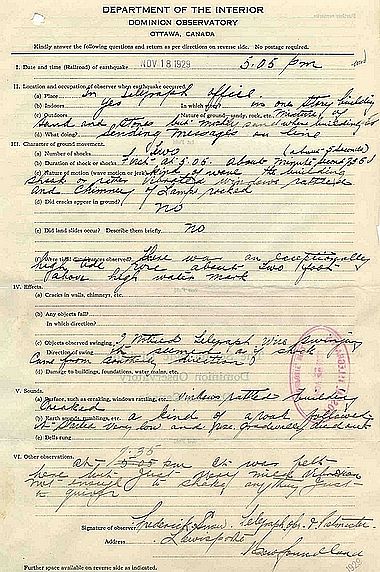 DEPARTMENT OF THE INTERIOR
DOMINION OBSERVATORY
OTTAWA, CANADA
Kindly answer the following questions and return as per directions on reverse side. No postage required.
I. Date and time (Railroad) of earthquake NOV 18 1929 5.05 pm
II. Location and occupation of observer when earthquake occurred.
(a) Place In telegraph office
(b) Indoors Yes In which story? in one story building
(c) Outdoors Nature of ground—sandy, rock, etc. Mixture of
sand and stones but mostly sand where building is
(d) What doing? Sending messages on line
III. Character of ground movement.
(a) Number of shocks two
(b) Duration of shock or shocks first at 5.05. about minute
(c) Nature of motion (wave motion or jerk) kind of wave the building
shook or rather vibrated windows rattled
and chimney of lamps rocked
(d) Did cracks appear in ground? No
(e) Did land slides occur? Describe them briefly. No
(f) Were tidal there was an exceptionally
high tide rose about two feet
above high water mark
IV. Effects.
(a) Cracks in walls, chimneys, etc.
(b) Any objects fall?
In which direction?
(c) Objects observed swinging. I noticed Telegraph wire swinging
Direction of swing It seemed as if shock
came from southern direction
(d) Damage to buildings, foundations, water mains, etc.
V. Sounds.
(a) Surface, such as creaking, windows rattling, etc. Windows rattled building
creaked
(b) Earth sounds, rumblings, etc. a kind of a roar followed
it started very low and gradually died out
(c) Bells rung
VI. Other observations.
at 7.35 pm it was felt
here but just very mild vibration
not enough to shake anything just
to quiver
Signature of observer Telegraph
Address
Newfoundland
Further space available on reverse side as indicated.